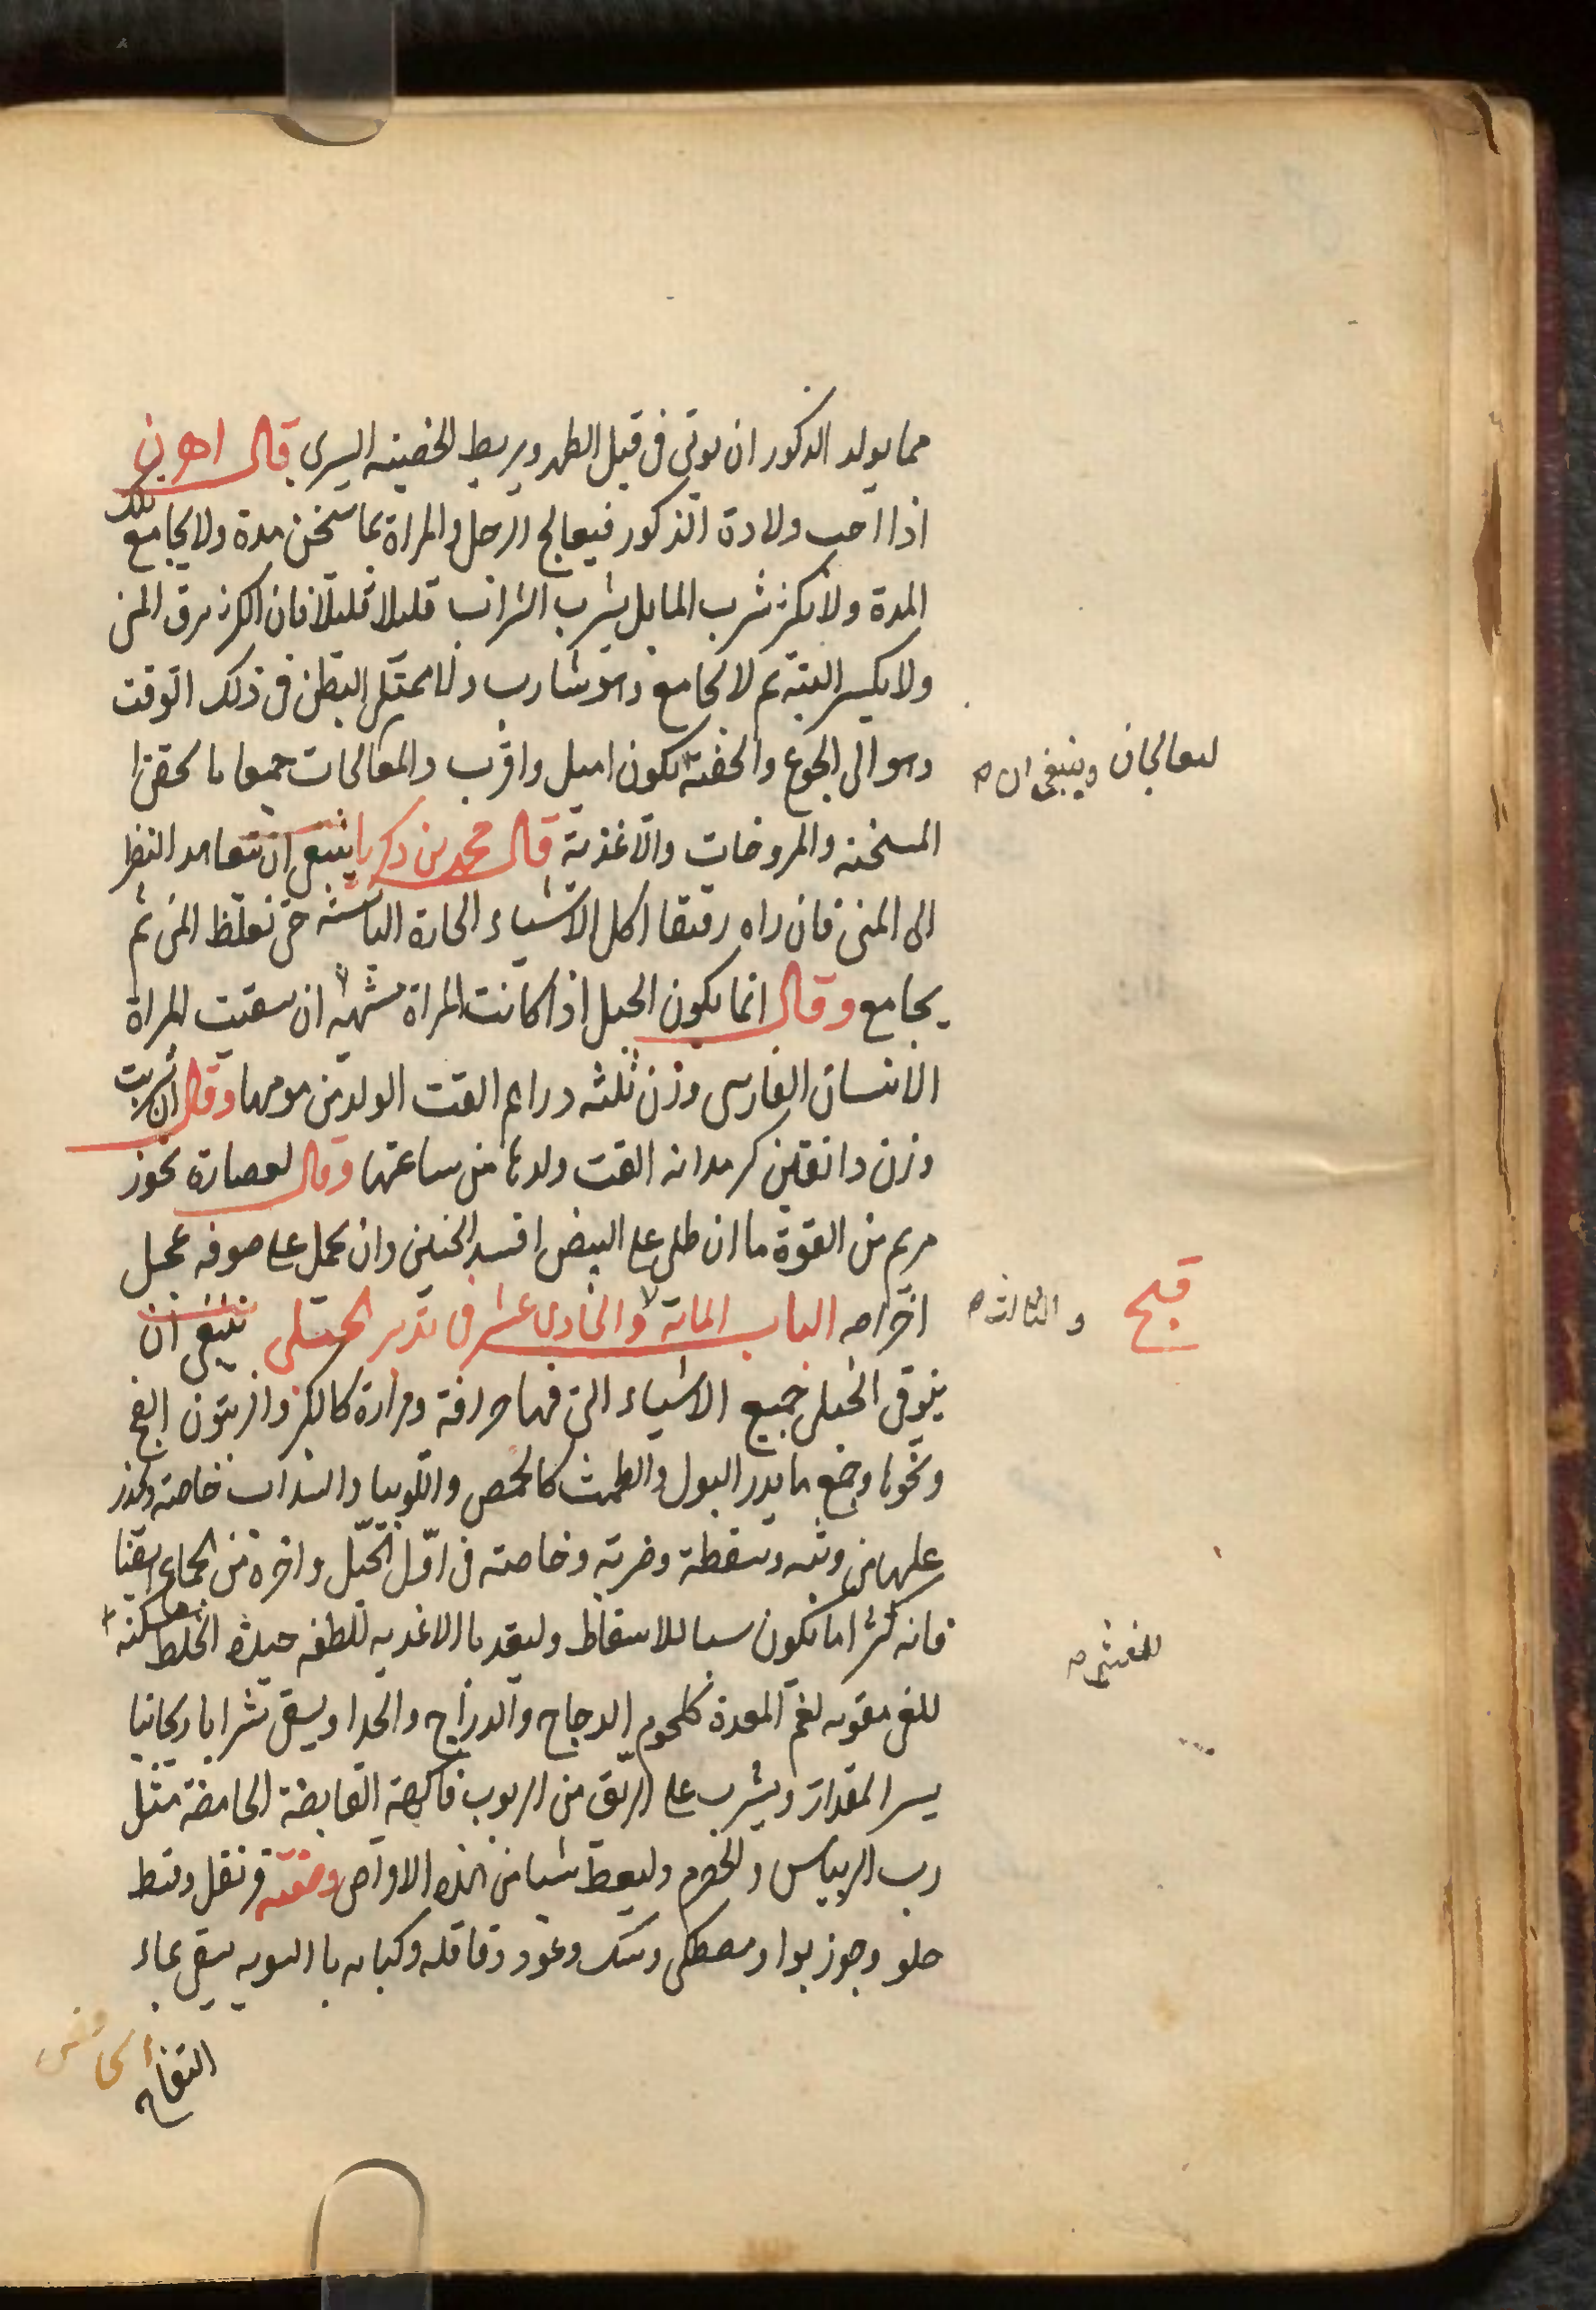 مما يولد الذكور ان يوتى فى قبل الطهر ويربط الخصيته اليسرى قال اهرن
اذا احب ولادة الذكور فيعالج الرجل والمراة بما يسخن مدة ولا يجامع تلك
المدة ولا يكثر شرب الما بل يشرب الشراب قليلا قليلا فان الكثر يرق المنى
ولا يكسر البتة ثم لا يجامع وهو شارب ولا ممتلى البطن فى ذلك الوقت
وهو الى الجوع والخفة يكون اميل واقرب والمعالجات جميعا بالحقن
لسعالجان وينبغى ان صح
المسخنه والمروخات والاغذية قال محمد بن زكريا ينبغى ان يتعاهد النظر
الى المنى فان راه رقيقا اكل الاشياء الحارة اليابسة حتى تغلظ المنى ثم
يجامع وقال انما يكون الحبل اذا كانت المراة مشتهيه ان سقيت المراة
الانسان الفارسى وزن ثلثه دراهم القت الولد من يومها وقال ان شربت
وزن دانقين كرمدانه القت ولدها من ساعتها وقال لعصارة بخور
مريم من القوة ما ان طلى على البيض افسد الجنين وان يحمل على صوفه عجل
اخراجه الباب المائة والحادى عشر فى تدبير الحبلى ينبغى ان
والثالث صح
قبح
يتوقى الحبلى جميع الاشياء التى فيها حرافة ومرارة كالكبر والزيتون الفج
ونحوها وجمع ما يدر البول والطمث كالحمص واللوبيا والسذاب خاصته ويحذر
عليها من وثبه وسقطة وضربة وخاصته فى اول الحبل واخره من الجماع ايضا
فانه كثرا ما يكون سببا للاسقاط وليغد بالاغذيه للطفه جيدة الخلط مسكنه
للغشى صح
للغى مقويه لفم المعدة كلحوم الدجاج والدراج والجدا ويسقى شرابا ريحانيا
يسر المقدار ويشرب على الريق من الربوب فاكهة القابضة الحامضة مثل
رب الريباس والحصرم وليعط شيا من هذه الاقراص وصفته قرنفل وقسط
حلو وجوز بوا ومصطكى وسك وعود وقاقله وكبابه بالسويه يسقى بماء
التفاح
الحامض